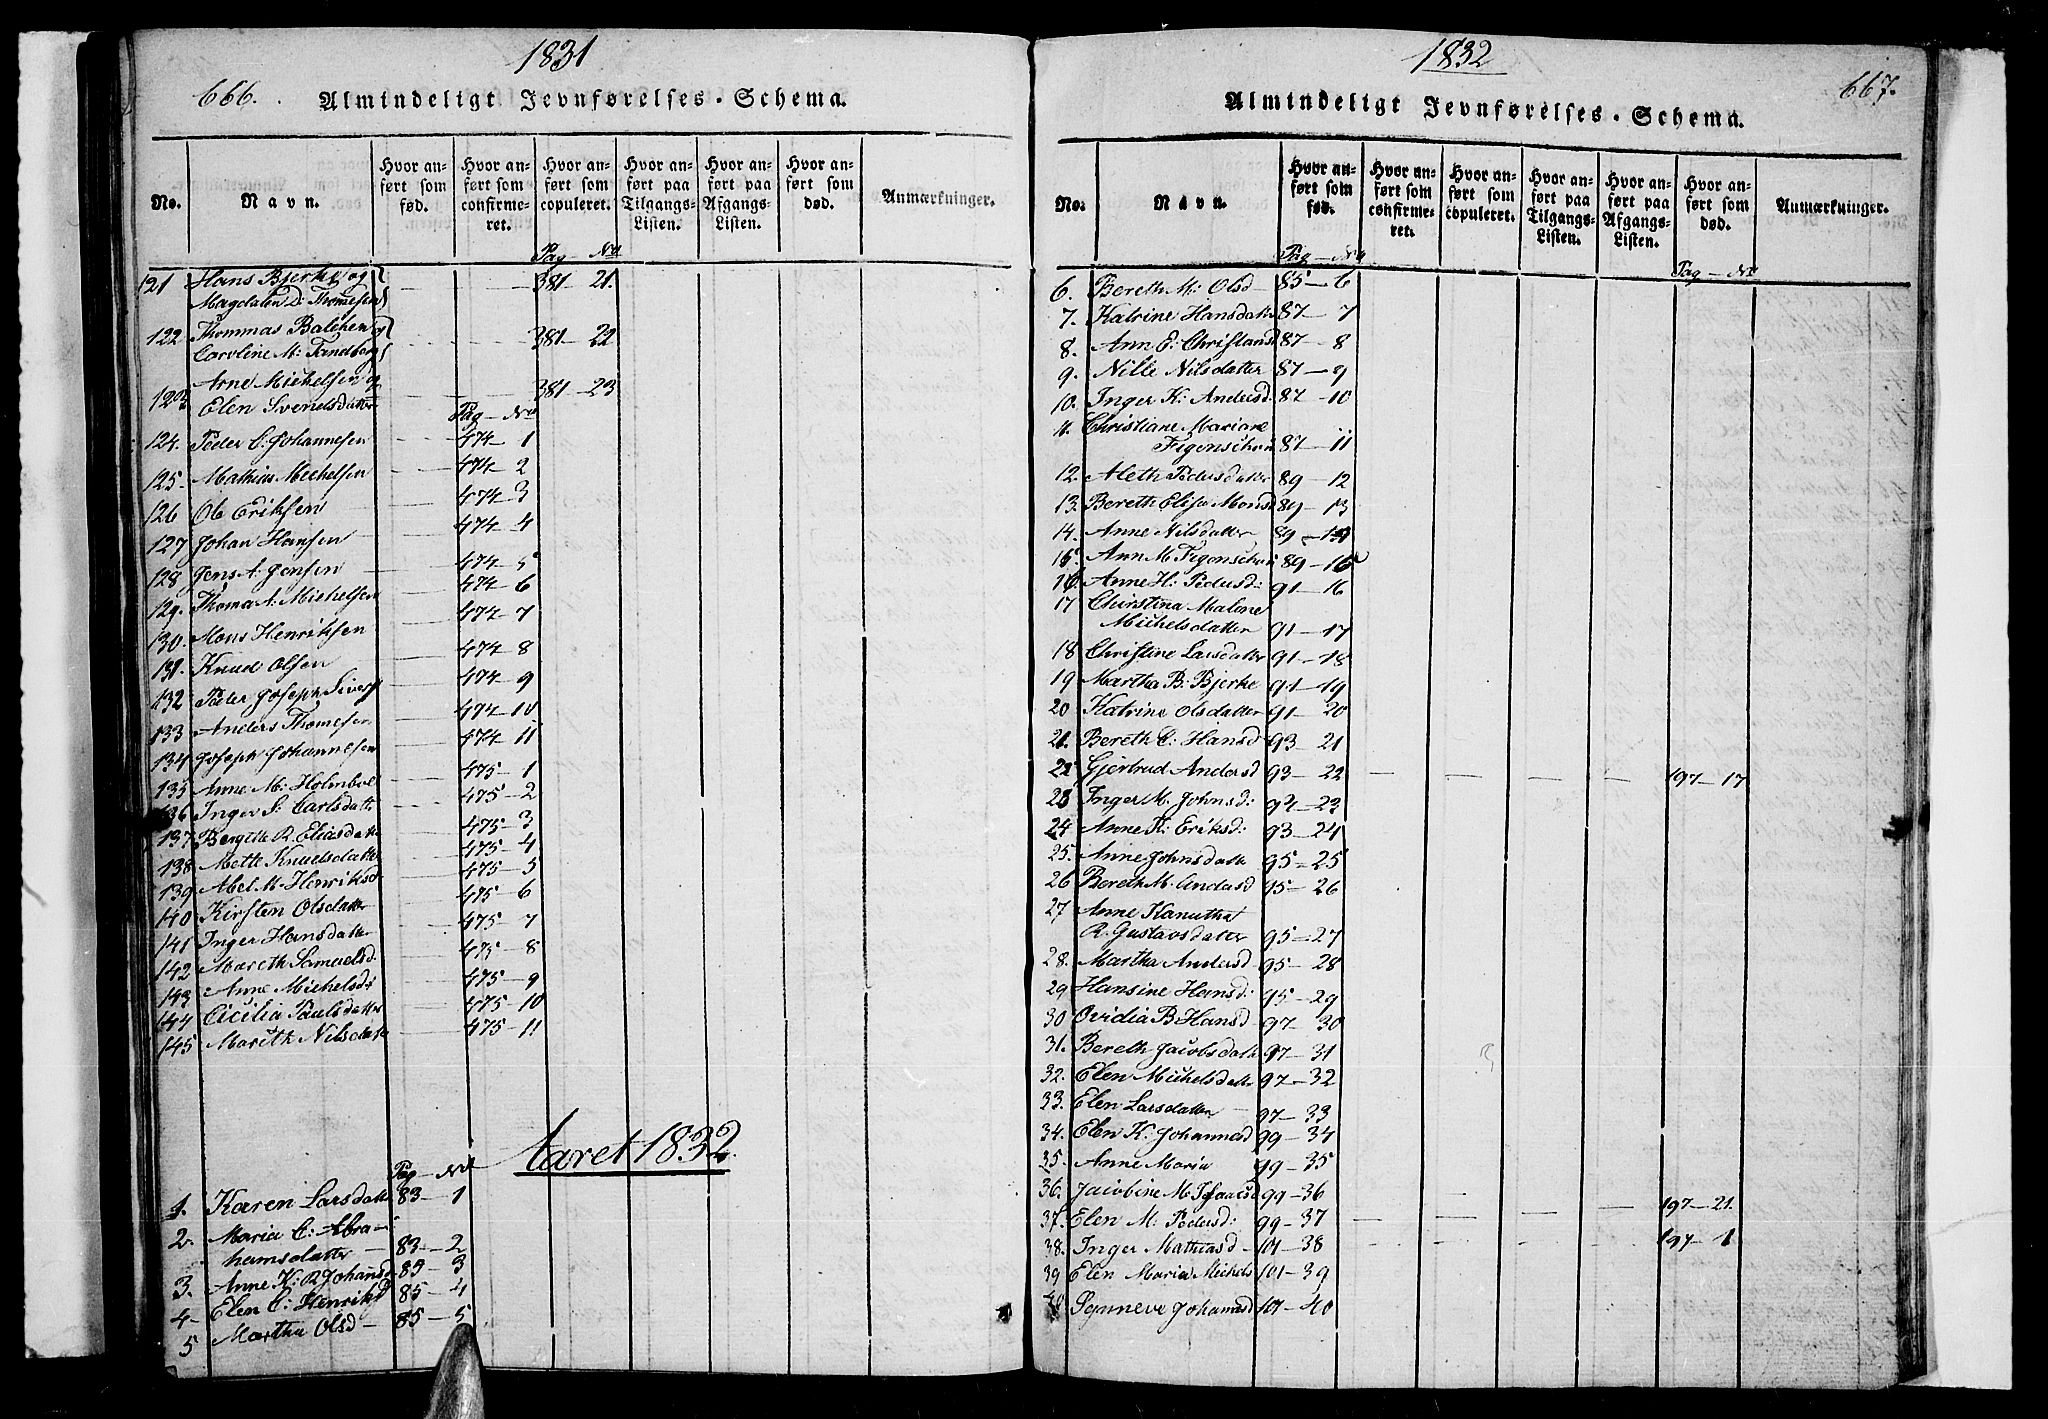 1831
666.
Almindeligt Jevnførelses-Schema.
No.
Navn.
Hvor an-
ført som
fød.
Hvor an-
ført som
confirme-
ret.
Hvor an-
ført som
copuleret.
Hvor an-
ført paa
Tilgangs-
Listen.
Hvor an-
ført paa
Afgangs-
Listen.
Hvor an-
ført som
død.
Anmærkninger.
Pag No
121 Hans Bjerke og
Magdalen D: Thomesen 381 - 21.
122 Thommas Balchen og
Caroline M: Tandberg 381 - 22
123 Arne Michelsen og
Elen Svendsdatter 381 - 23
Pag - No
124. Peder C. Johannesen 474 - 1
125. Mathias Michelsen 474 - 2
126 Ole Eriksen 474 - 3
127 Johan Hansen 474 - 4
128 Jens A. Jensen 474 - 5
129. Thoma A: Michelsen 474 - 6
130. Mons Henriksen 474 - 7
131. Knud Olsen 474 - 8
132 Peder Joseph Sivers 474 - 9
133 Anders Thomesen 474 - 10
134 Joseph Johannesen 474 - 11
135 Anne M: Holmboe 475 - 1
136 Inger S: Carlsdatt 475 - 2
137 Bergitte R. Eliasdat 475 - 3
138 Mette Knudsdatter 475 - 4
139 Abel M. Henriksd 475 - 5
140 Kirsten Olsdatter 475 - 6
141 Inger Hansdatter 475 - 7
142 Mareth Samuelsd. 475 - 8
143 Anne Michelsd: 475 - 9
144 Cicilia Paulsdatter 475 - 10
145 Marith Nilsdatte 475 - 11
Aaret 1832.
Pag - No
1. Karen Larsdatte 83 - 1
2. Maria C: Abra-
hamsdatter 83 - 2
3. Anne K: R Johansd 83 - 3
4 - Elen C: Henriksd 85 - 4
5 Martha Olsd - 85 - 5
1832
667.
Almindeligt Jevnførelses-Schema.
No.
Navn.
Hvor an-
ført som
fød.
Hvor an-
ført som
confirme-
ret.
Hvor an-
ført som
copuleret.
Hvor an-
ført paa
Tilgangs-
Listen.
Hvor an-
ført paa
Afgangs-
Listen.
Hvor an-
ført som
død.
Anmærkninger.
Pag - No
Pag - No
6. Bereth M: Olsd 85 - 6
7. Katrine Hansdatt 87 - 7
8. Ann E. Christiansd 87 - 8
9. Nille Nilsdatter 87 - 9
10. Inger K: Andersd. 87 - 10
11. Christiane Mariane
Figenschou 87 - 11
12. Aleth Pedersdatter 89 - 12
13. Bereth Elisa Monsd 89 - 13
14. Anne Nilsdatter 89 - 14
15. Ann M. Figenschou 89 - 15
16. Anne H: Pedersd: 91 - 16
17 Christina Malene
Michelsdatter 91 - 17
18 Christine Larsdatter 91 - 18
19 Martha B: Bjerke 91 - 19
20 Katrine Olsdatter 91 - 20
21. Bereth C: Hansd 93 - 21
22 Gjertrud Andersd 93 - 22 197 - 17
23 Inger M. Johnsd: 93 - 23
24. Anne K: Eriksd: 93 - 24
25. Anne Johnsdatte 95 - 25
26 Bereth M. Andersd 95 - 26
27 Anne Kanutha
R. Gustavsdatter 95 - 27
28. Martha Andersd 95 - 28
29 Hansine Hansd: 95 - 29
30 Ovidia B Hansd 97 - 30
31. Bereth Jacobsdatt 97 - 31
32. Elen Michelsdatte 97 - 32
33. Elen Larsdatter 97 - 33
34. Elen K. Johannesd 99 - 34
35. Anne Maria 99 - 35
36. Jacobine M. Isaacsd 99 - 36 197 - 21.
37. Elen M: Pedersd: 99 - 37
38. Inger Mathiasd - 101 - 38 197 - 1
39 Elen Maria Michels 101 - 39
40 Synneve Johannesd 101 - 40